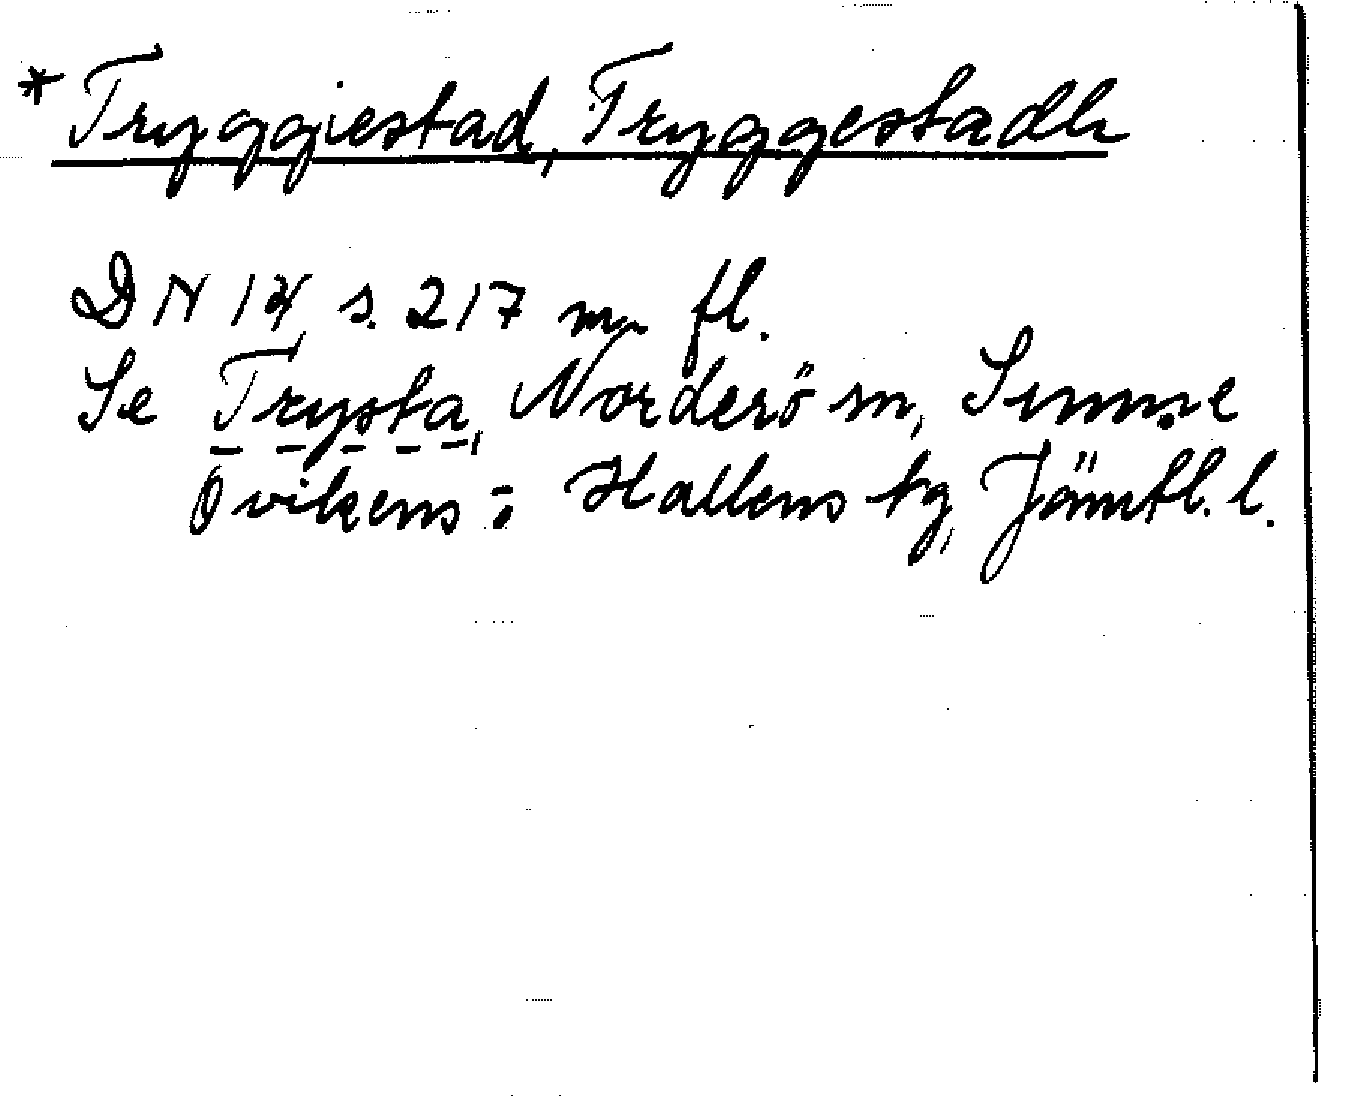 * Tryggiestad, Tryggestadh
DN 14, s. 217 m. fl.
Se Trysta, Norderö sn, Sunne
Ovikens o. Hallens tg, Jämtl. l.